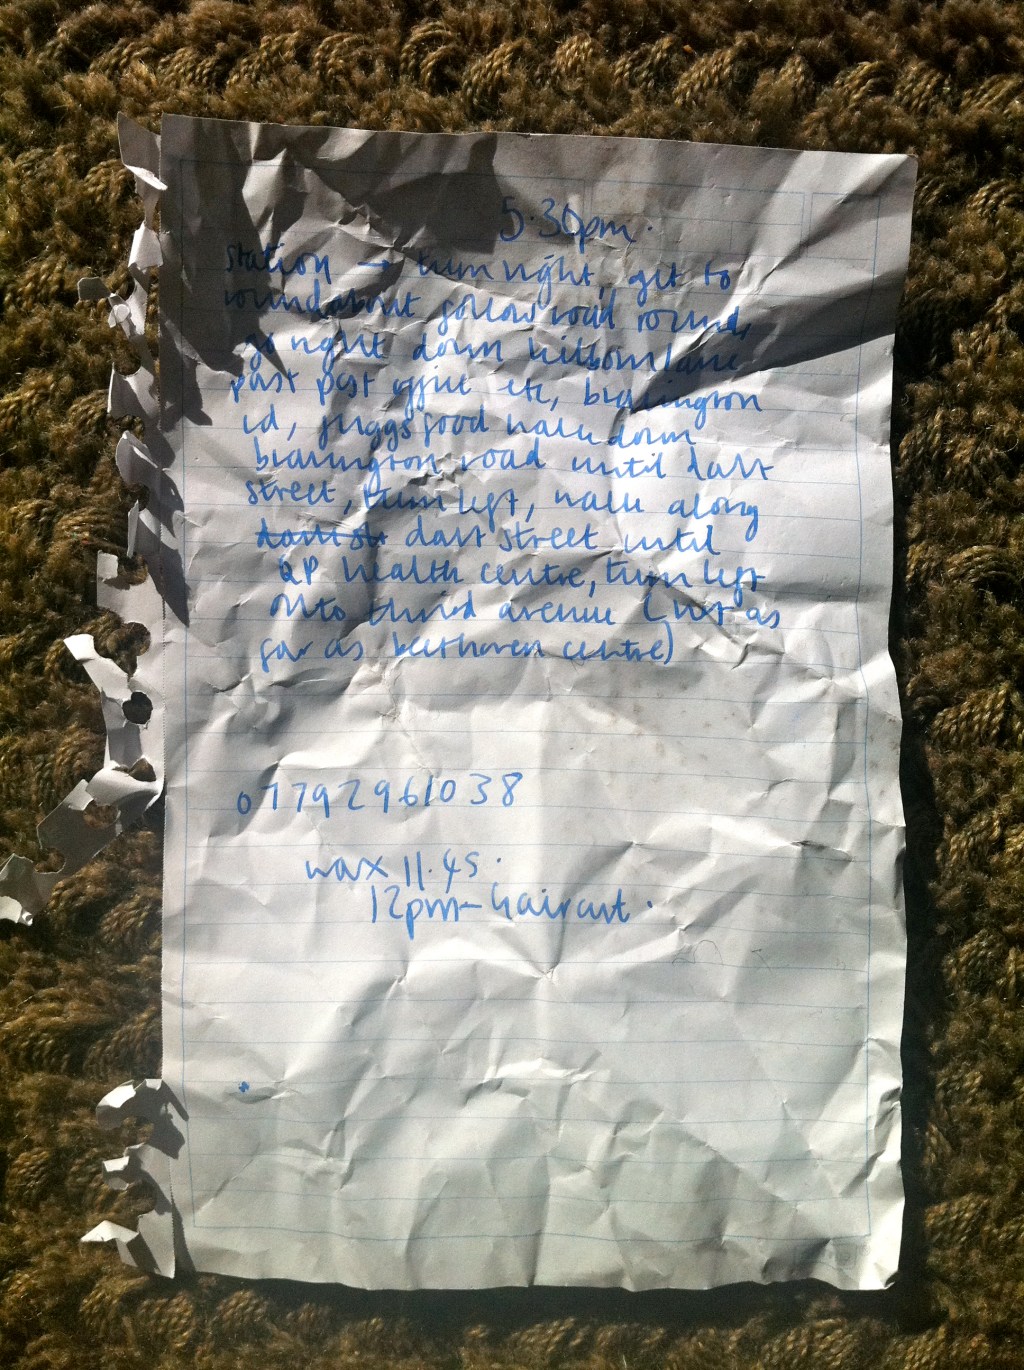 5.30pm.
station → turn right, get to
roundabout follow road round,
go right down kilburn lane
past post office etc, bravington
rd, food walk down
bravington road until dart
street, turn left, walk along
dart street until
QP health centre, turn left
onto third avenue (not as
far as beethoven centre)
07792961038
wax 11.45.
12pm - haircut.